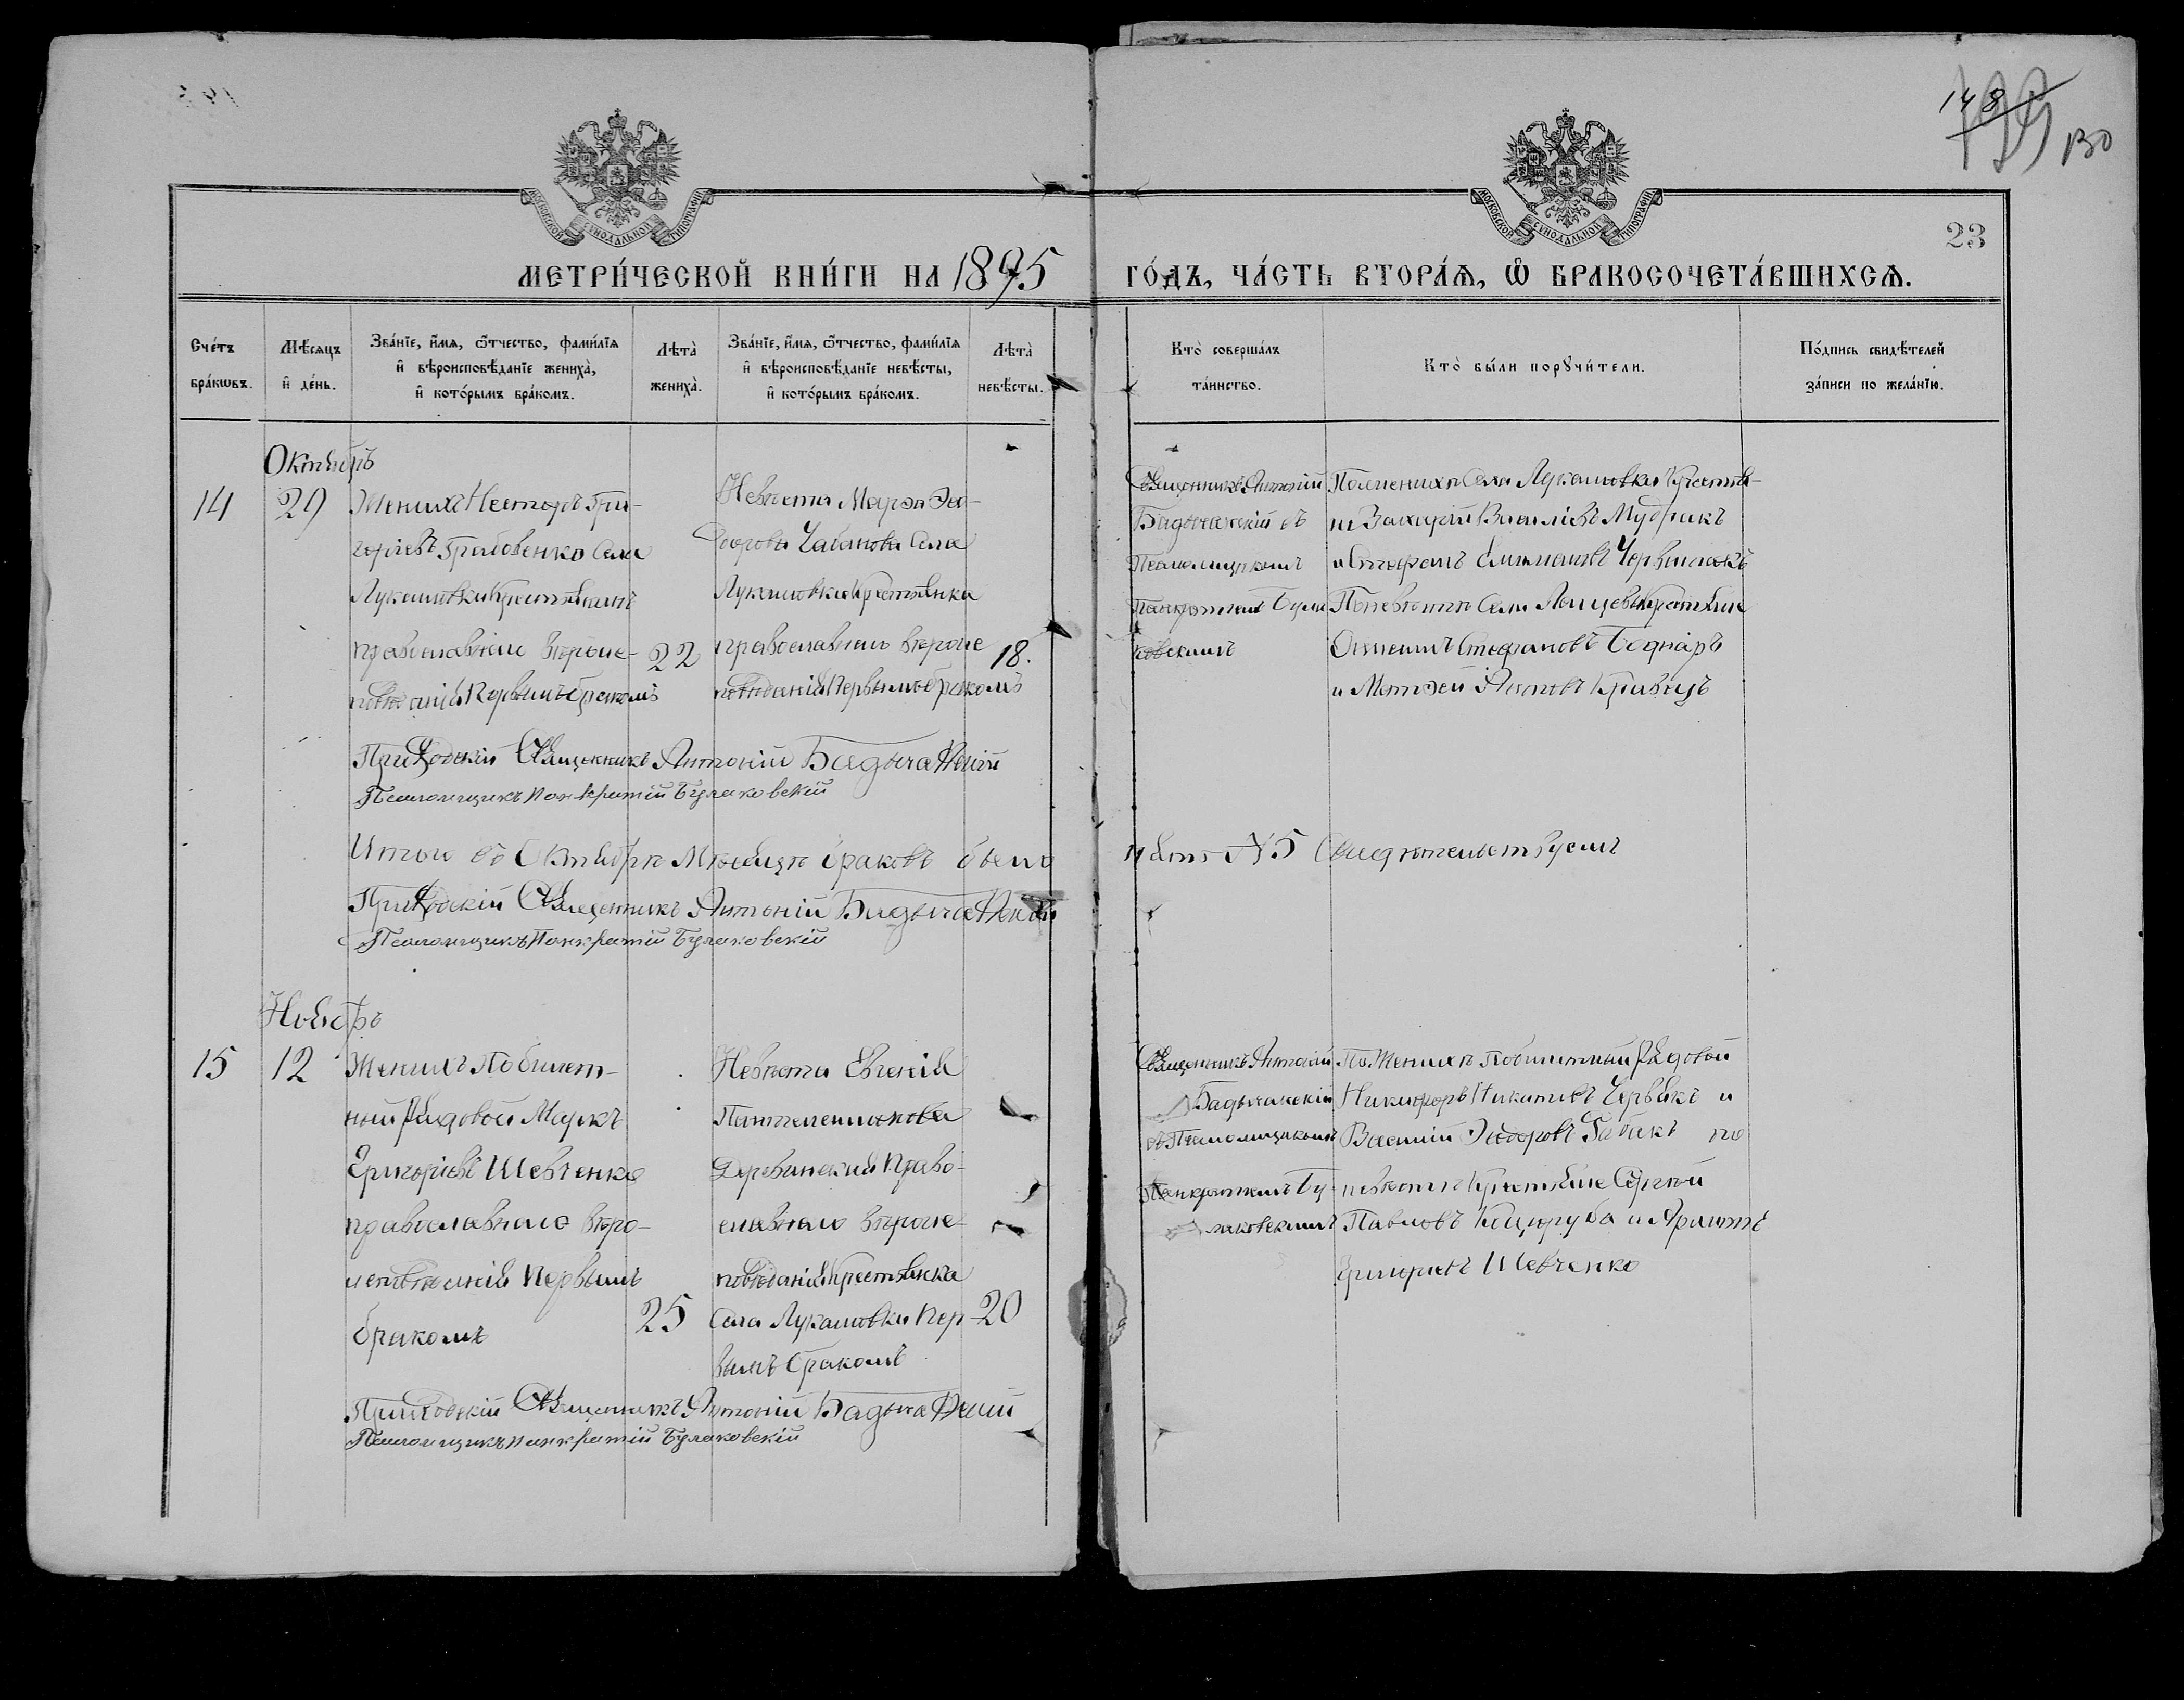 148
130
23
МОСКОВСКОЙ СѴНОДАЛЬНОЙ ТИПОГРАФІИ
МОСКОВСКОЙ СѴНОДАЛЬНОЙ ТИПОГРАФІИ
МЕТРИ́ЧЕСКОЙ КНИ́ГИ НА 1895
ГО́ДЪ, ЧА́СТЬ ВТОРА́Ѧ, Ѽ БРАКОСОЧЕТА́ВШИХСѦ.
Сче́тъ бра́кѡвъ.
Мѣ́сѧцъ и҆ де́нь.
Зва́нїе, и҆́мѧ, ѻ҆́тчество, фами́лїѧ и҆ вѣроисповѣ́данїе жениха̀, и҆ кото́рымъ бра́комъ.
Лѣта̀ жениха̀.
Зва́нїе, и҆́мѧ, ѻ҆́тчество, фами́лїѧ и҆ вѣроисповѣ́данїе невѣ́сты, и҆ кото́рымъ бра́комъ.
Лѣта̀ невѣ́сты.
Кто̀ соверша́лъ та́инство.
Кто̀ бы́ли порꙋчи́тели.
По́дпись свидѣ́телей за́писи по жела́нїю.
Октябрь
14
29
Женихъ Несторъ Гри-
горіевъ Грабовенко Села
Лукашовки Крестьянинъ
православнаго вѣроис-
повѣданія Первымъ бракомъ
22
Невѣста Марѳа Ѳео-
дорова Чабанова Села
Лукашовки Крестьянка
православнаго вѣроис
повѣданія Первымъ бракомъ
18.
Священникъ Антоній
съ
Псаломщикомъ
Панкратіемъ Була
ковскимъ
По женихѣ Села Лукашовки Крестья-
не Захарій Васильевъ Мудракъ
и Стефанъ
По невѣстѣ Села Крестьяне
Стефановъ Боднаръ
и Матѳей Кривецъ
Приходскій Священникъ Антоній
Псаломщикъ Панкратій Булаковскій
Итого въ Октябрѣ Мѣсяцѣ браковъ было
пять № 5 Свидѣтельствуемъ
Приходскій Священникъ Антоній
Псаломщикъ Панкратій Булаковскій
Ноябрь
15
12
Женихъ Побилет-
ный Рядовой Маркъ
Григоріевъ Шевченко
православнаго вѣро-
исповѣданія Первымъ
бракомъ
25
Невѣста Евгенія
Пантелеимонова
Деревинская Право-
славнаго вѣроис-
повѣданія Крестьянка
Села Лукашовки Пер-
вымъ бракомъ
20
Священникъ Антоній
съ Псаломщикомъ
Панкратіемъ Бу-
лаковскимъ
По Женихѣ Побилетный Рядовой
Никифоръ Никитинъ Червякъ и
Василій Ѳедоровъ Бабакъ по
невѣстѣ Крестьяне Сергій
Павловъ Коцюруба и
Григоріевъ Шевченко
Приходскій Священникъ Антоній
Псаломщикъ Панкратій Булаковскій